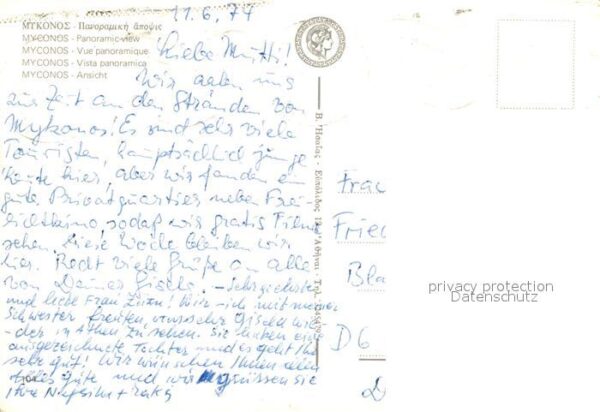 11.6.74
ΜΥΚΟΝΟΣ - Πανοραμική άποψις
MYCONOS - Panoramic view
MYCONOS - Vue panoramique
MYCONOS - Vista panoramica
MYCONOS - Ansicht
Liebe Mutti!
Wir aalen uns
zur Zeit an den Stränden von
Mykonos! Es sind sehr viele
Touristen, hauptsächlich junge
Leute hier, aber wir fanden ein
gutes Privatquartier neben Frei-
lichtkino, sodaß wir gratis Filme
sehen. Diese Woche bleiben wir
hier. Recht viele Grüße an alle
von Deiner Gisela. - Sehr geehrte
und liebe Frau! Wir - ich mit meiner
Schwester freuten, uns sehr Gisela wie-
der in Athen zu sehen. Sie haben eine
ausgezeichnete Tochter und es geht ihr
sehr gut! Wir wünschen Ihnen alles
Gute und wir grüssen sie
Ihre
Β. Ἠσαΐας - Εὐπόλιδος Ἀθῆναι - Τηλ.
Frau
Fried
Bla
D 6
privacy protection
Datenschutz